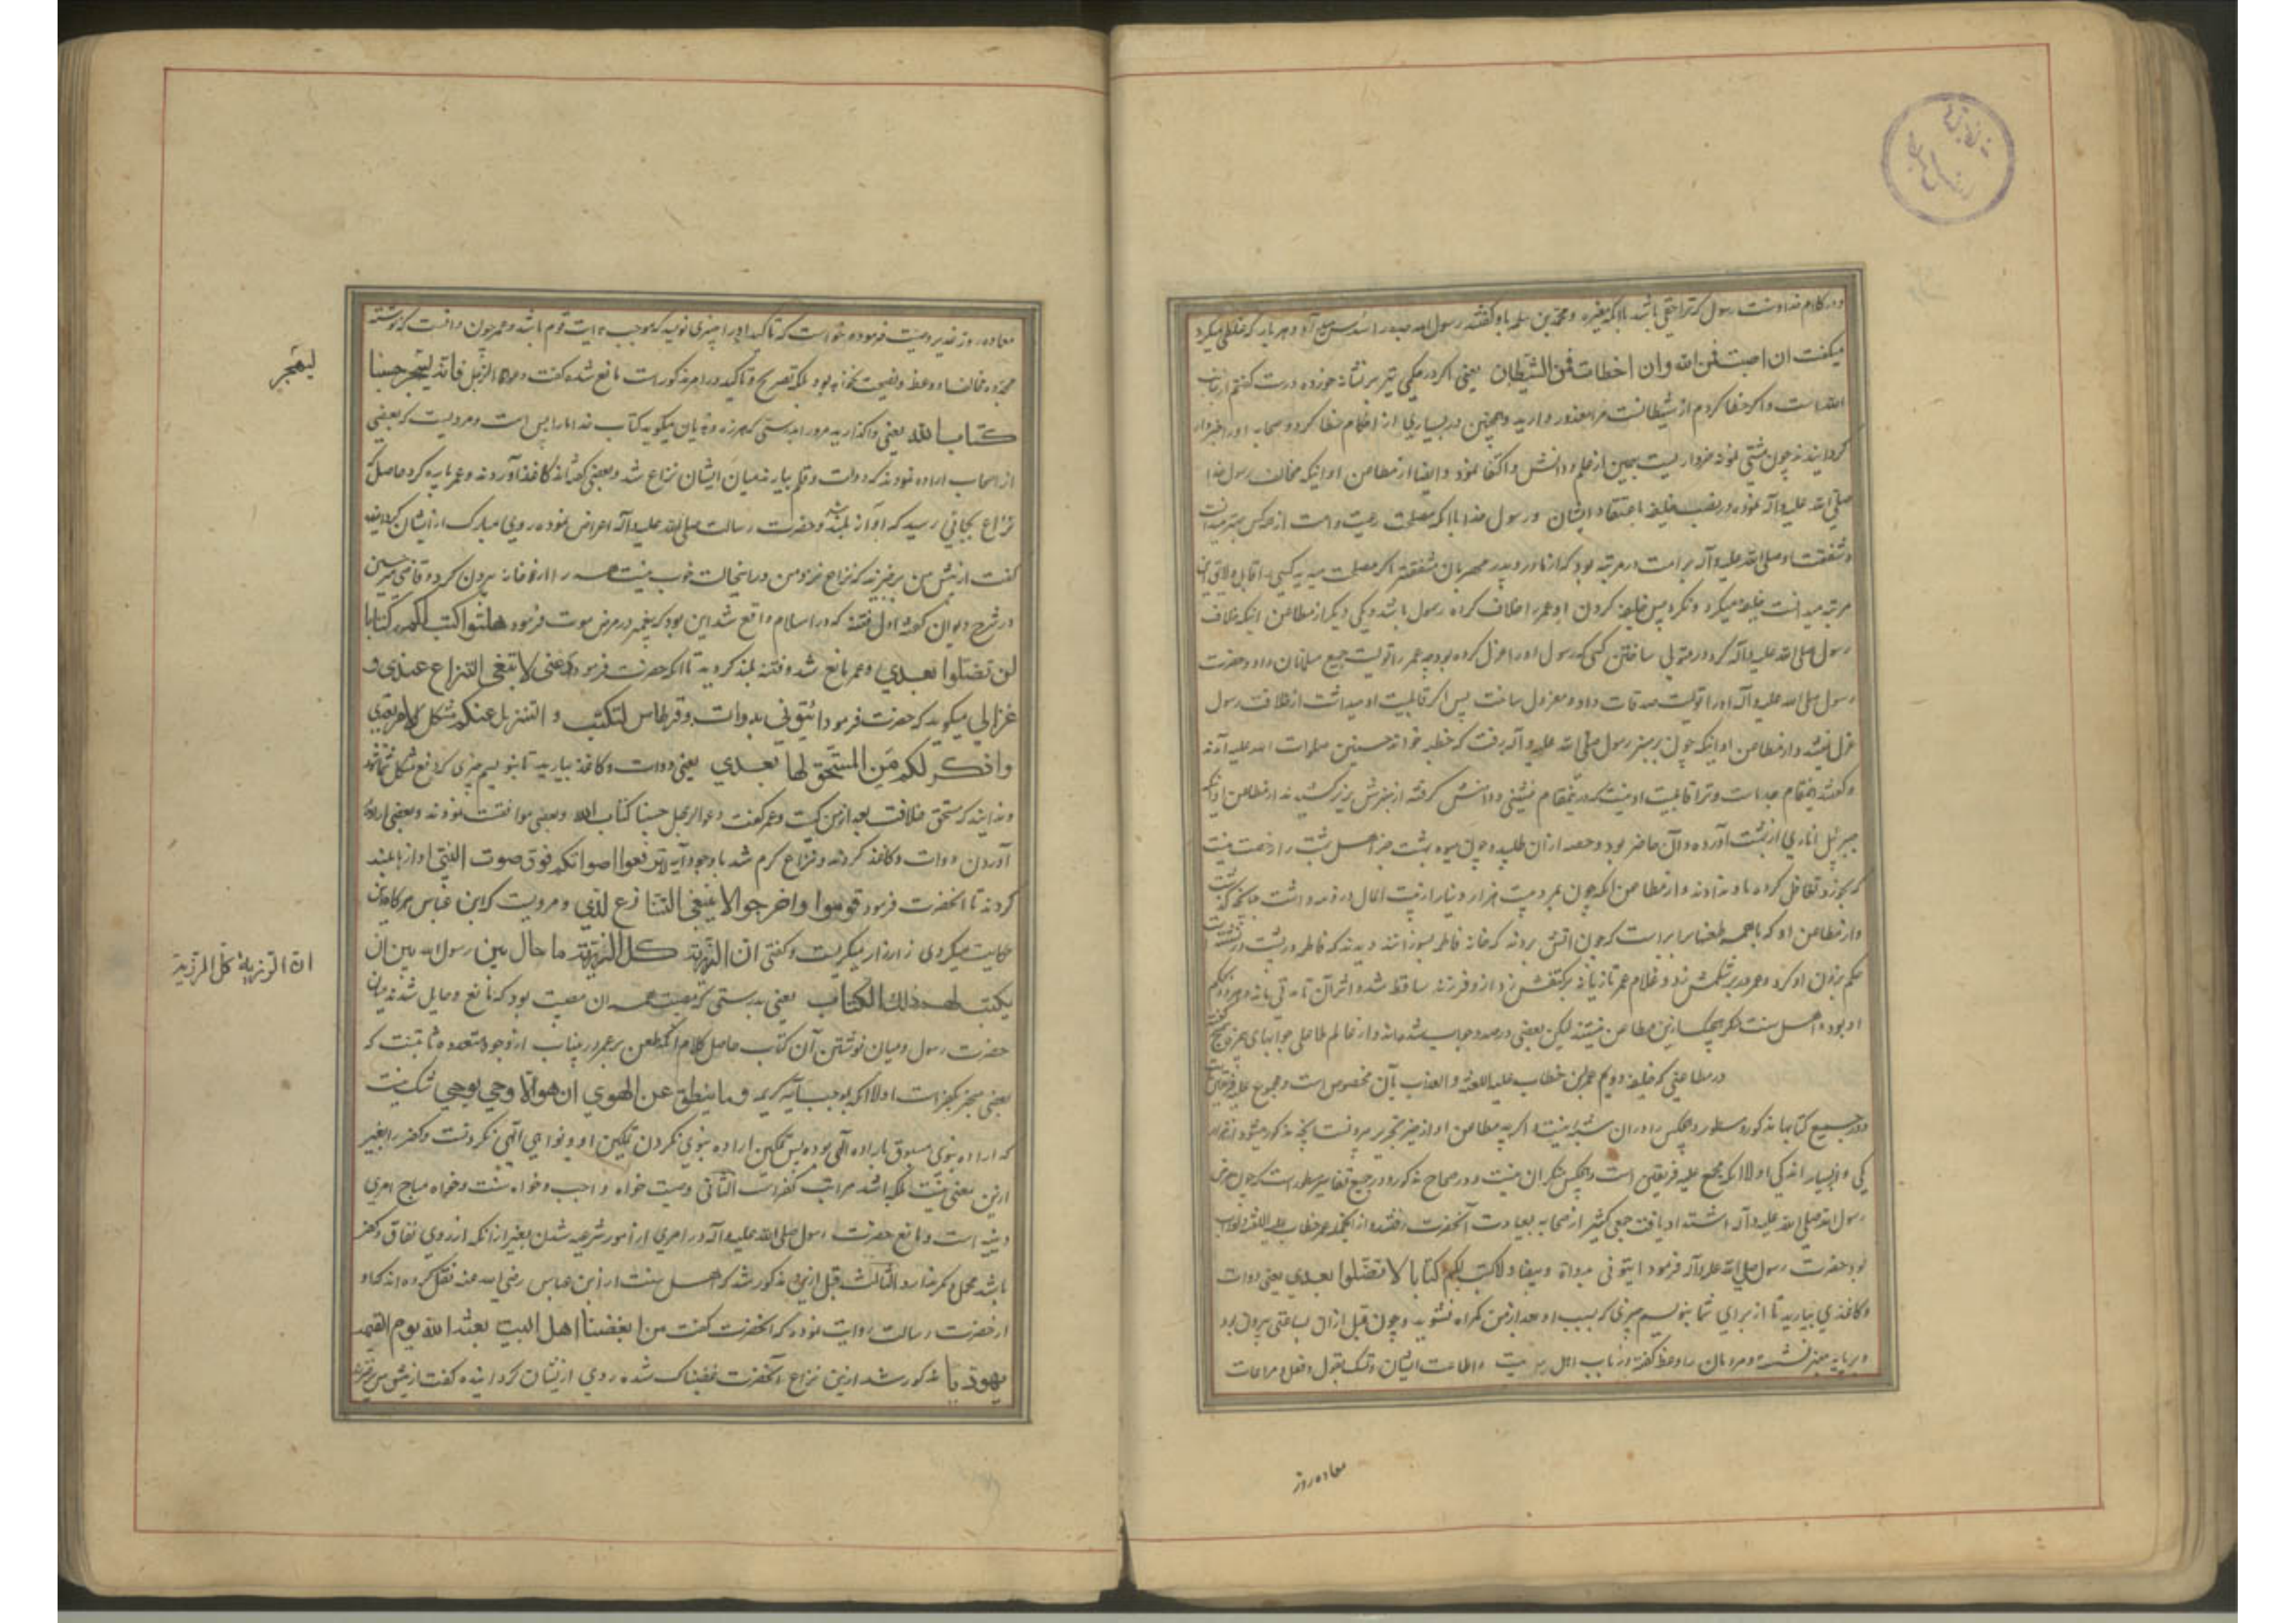 در کلام خدا و سنت رسول که ترا حقی باشد بلکه مغیره و محمد بن مسلمه باو گفتند رسول الله و هر بار که غلطی میکرد
میکفت ان اصبت فمن الله وان اخطات فمن الشیطان یعنی اگر در حکمی تیر بر نشانه خورده درست گفتم از جانب
الله است و اگر خطا کردم از شیطانست مرا معذور دارید و همچنین در بسیاری از احکام خطا کرد و صحابه او را خبردار
گردانیدند چون مشتی نمونه خروار است بهمین از علم و دانش او اکتفا نمود و ایضا از مطاعن او اینکه مخالفت رسول خدا
صلی الله علیه وآله نمود در نصب خلیفه باعتقاد ایشان و رسول خدا با آنکه مصلحت رعیت و امت از همه کس بهتر میدانست
و شفقت او صلی الله علیه وآله بر امت در مرتبه بود که از مادر و پدر مهربان مشفقتر اگر مصلحت میدید کسی را قابل و لایق این
مرتبه میدانست خلیفه میکرد و نکرد پس خلیفه کردن او عمر را خلاف کرده رسول باشد و یکی دیگر از مطاعن اینکه خلاف
رسول صلی الله علیه وآله کرد در متولی ساختن کسی که رسول او را عزل کرده بود چه عمر را تولیت جمیع مسلمانان داد و حضرت
رسول صلی الله علیه وآله او را تولیت صدقات داد و معزول ساخت پس اگر قابلیت او میداشت از خلافت رسول
عزل نمیشد و از مطاعن او اینکه چون بر منبر رسول صلی الله علیه وآله رفت که خطبه خواند حسنین صلوات الله علیه آمدند
و گفتند این مقام جد ماست و ترا قابلیت او نیست که در این مقام نشینی و دامنش گرفته از منبرش بزیر کشیدند از مطاعن او آنکه
جبرئیل اناری از بهشت آورده و آن حاضر بود و حصه از آن طلبید و چون میوه بهشت جز اهل بهشت را رخصت نیست
که بخورد تغافل کرده باو ندادند و از مطاعن آنکه چون بمرد بیست هزار دینار از بیت المال در ذمه داشت چنانچه گذشت
و از مطاعن او که با همه طعنها برابر است که چون آتش بردند که خانه فاطمه بسوزانند دیدند که فاطمه در پشت در نشسته است
حکم بزدن او کرد و عمر در بر شکمش زد و غلام عمر تازیانه بر کتفش زد از و فرزند ساقط شد و اثر آن تا مدتی مانده و هر دو بحکم
او بوده و اهل سنت منکر هیچیک از این مطاعن نیستند لیکن بعضی در صدد جواب شده اند و از عالم لاطایل جوابهای
در مطاعنی که خلیفه دویم عمر بن خطاب علیه اللعنة و العذاب بآن مخصوص است و مجموع علیه فریقین است
و در جمیع کتابها مذکور و مسطور و هیچکس را در ان شبهه نیست اگر چه مطاعن او از حیز تحریر بیرونست آنچه مذکور میشود از هزار
یکی و از بسیار اندکی اولا آنکه مجمع علیه فریقین است و هیچکس منکر ان نیست و در صحاح مذکور و در جمیع تفاسیر مسطور است که چون مرض
رسول الله صلی الله علیه وآله اشتداد یافت جمعی کثیر از صحابه بعیادت آنحضرت رفتند و از آنجمله عمر خطاب علیه اللعنة والعذاب
بود حضرت رسول صلی الله علیه وآله فرمود ایتونی بدواة وبیضا ولا کتب لکم کتابا لا تضلوا بعدی یعنی دوات
و کاغذی بیارید تا از برای شما بنویسم چیزی که بسبب او بعد از من کمراه نشوید و چون قبل از ان بساعتی بیرون بود
و بر پایه منبر نشسته و مردمان را وعظ گفته و در باب اهل بیت و اطاعت ایشان و تمسک بقول و فعل و مراعات
معاده روز
معاده روز غدیر وصیت فرموده خواست که تاکیدا او را چیزی نویسد که موجب هدایت قوم باشد و عمر چون دانست که نوشته
مجرد مخالفا و وعظ و نصیحت نخواهد بود بلکه تصریح و تاکید در امر مذکور است مانع شده گفت دعوا الرجل فانه لیهجر حسبنا
لیهجر
کتاب الله یعنی واگذارید مرد را بدرستی که هرزه و هذیان میگوید کتاب خدا ما را بس است و مرویست که بعضی
از اصحاب اراده نمودند که دوات و قلم بیارند میان ایشان نزاع شد و بعضی گفتند کاغذ آوردند و عمر پاره کرد حاصل که
نزاع بجائی رسید که آواز بلند شد و حضرت رسالت صلی الله علیه وآله اعراض نموده روی مبارک از ایشان گردانید
گفت از پیش من برخیزید که نزاع نزد من در اینحالت خوب نیست همه را از خانه بیرون کرد و قاضی میر حسین
در شرح دیوان گوید اول فتنه که در اسلام واقع شد این بود که پیغمبر در مرض موت فرمود هلموا اکتب لکم کتابا
لن تضلوا بعدی و عمر مانع شد و فتنه بلند گردید تا آنکه حضرت فرمود دعنی لا تبغی النزاع عندی و
غزالی میگوید که حضرت فرمود ائتونی بدوات وقرطاس لنکتب و التنزیل عنکم مشکل الامر بعدی
واذکر لکم من المستحق لها بعدی یعنی دوات و کاغذ بیارید تا بنویسم چیزی که رفع مشکل شما شود
و بدانید که مستحق خلافت بعد از من کیست و عمر گفت دعوا الرجل حسبنا کتاب الله و بعضی موافقت نمودند و بعضی اراده
آوردن دوات و کاغذ کردند و نزاع گرم شد با وجود آیه لا ترفعوا اصواتکم فوق صوت النبی آوازها بلند
کردند تا آنحضرت فرمود قوموا واخرجوا لا ینبغی التنازع لدی و مرویست که ابن عباس هرگاه این
حکایت میکردی زار زار میگریست و گفتی ان الرزیة کل الرزیة ما حال بین رسول الله بین ان
ان الرزیة کل المرزیة
یکتب لهم ذلک الکتاب یعنی بدرستی که مصیبت همه ان مصیبت بود که مانع و حایل شدند میان
حضرت رسول و میان نوشتن آن کتاب حاصل کلام آنکه طعن بر عمر در این باب از وجوه متعدده ثابتست که
بعضی منجر بکفر است اولا آنکه بموجب آیه کریمه وما ینطق عن الهوی ان هو الا وحی یوحی شک نیست
که اراده نبوی مسبوق باراده الهی بوده پس تمکین اراده نبوی نکردن تمکین اوامر و نواهی الهی نکردنست و کفر را بغیر
ازین معنی نیست بلکه اشد مراتب کفر است الثانی وصیت خواه واجب و خواه سنت و خواه مباح امری
دینیه است و مانع حضرت رسول صلی الله علیه وآله در امری از امور شرعیه شدن بغیر از آنکه از روی نفاق و کفر
باشد محمل دیگر ندارد الثالث قبل ازین مذکور شد که اهل سنت از ابن عباس رضی الله عنه نقل کرده اند که او
از حضرت رسالت روایت نموده که آنحضرت گفت من ابغضنا اهل البیت بعثه الله یوم القیمه
یهودیا مذکور شد ازین نزاع آنحضرت غضبناک شده روی از ایشان گردانیده گفت از پیش من برخیزید